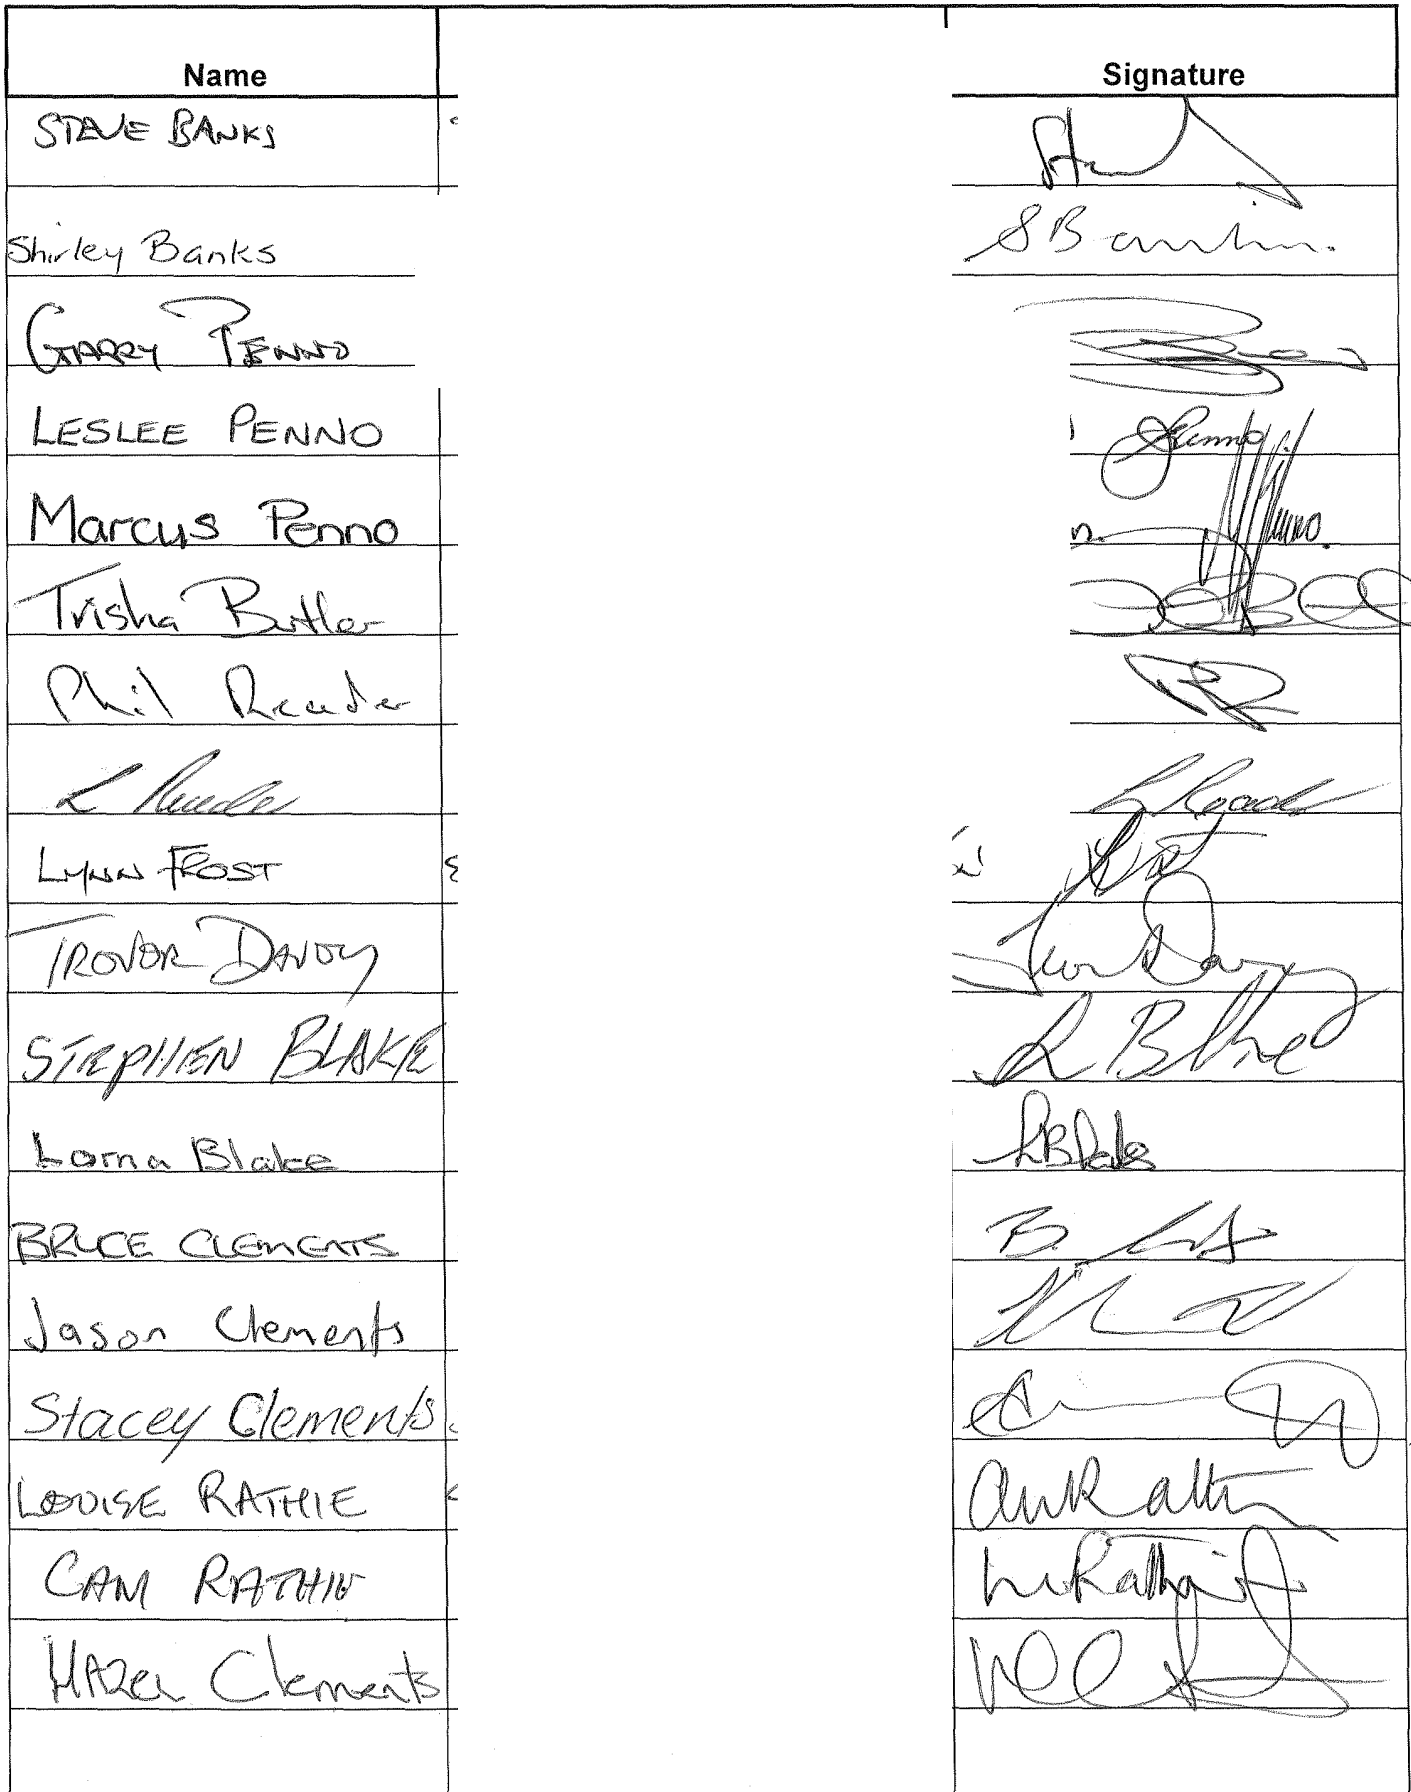 Name Signature
STEVE BANKS
Shirley Banks S Banks
GARRY PENNO
LESLEE PENNO Penno
Marcus Penno Penno.
Trisha Butler
Phil Reader
L Reader L Reader
LYNN FROST
TREVOR DAVEY Trevor Davey
STEPHEN BLAKE S Blake
Lorna Blake L Blake
BRUCE CLEMENTS B.
Jason Clements
Stacey Clements
LOUISE RATHIE Rathie
CAM RATHIE Rathie
HAZEL Clements